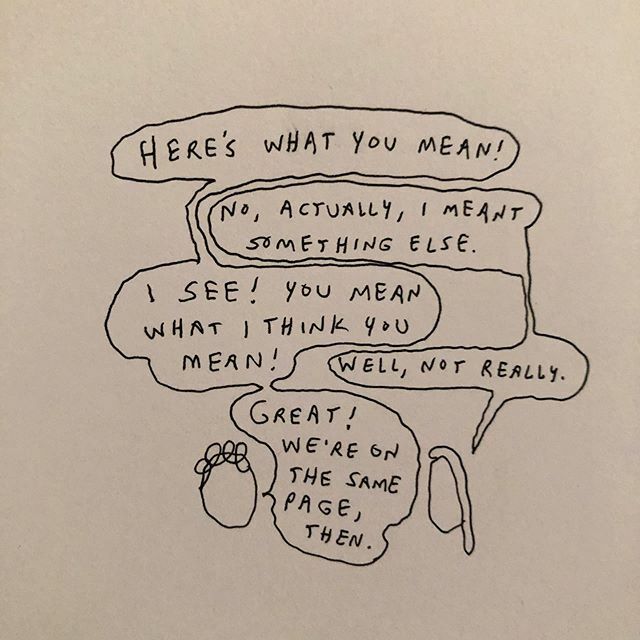 HERE'S WHAT YOU MEAN!
NO, ACTUALLY, I MEANT
SOMETHING ELSE.
I SEE! YOU MEAN
WHAT I THINK YOU
MEAN!
WELL, NOT REALLY.
GREAT!
WE'RE ON
THE SAME
PAGE,
THEN.